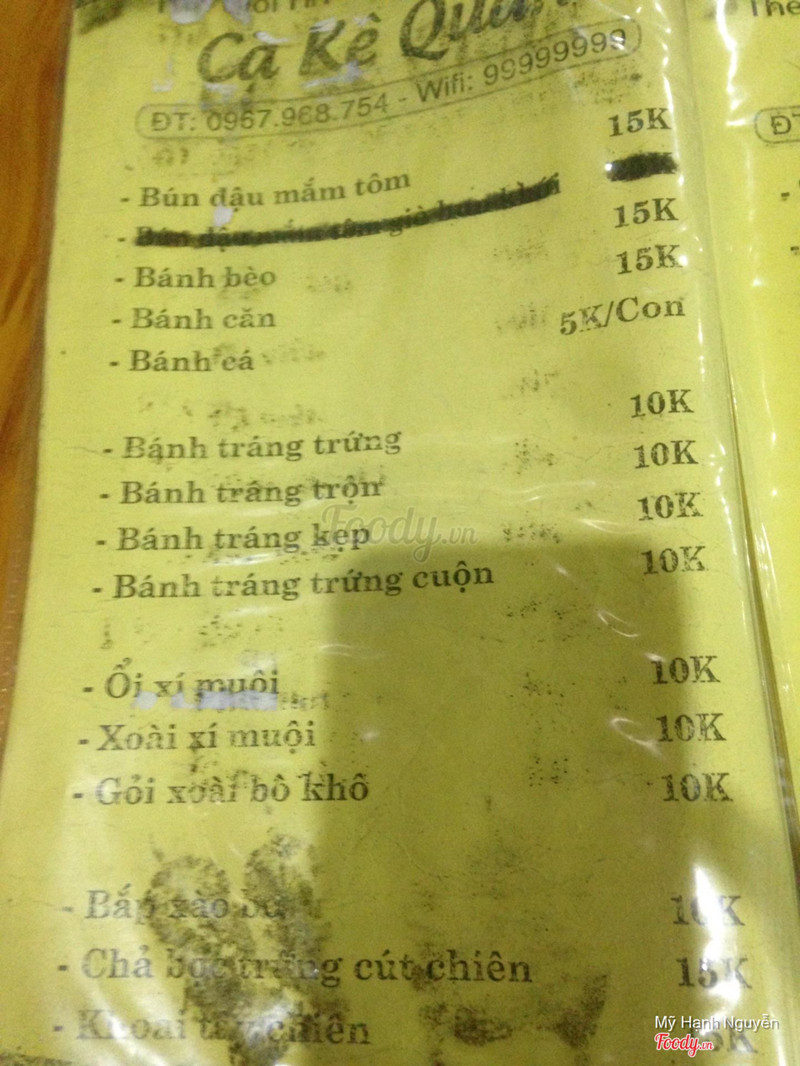 Cà Kê Quán
ĐT: 0967.968.754 - Wifi: 99999999
- Bún đậu mắm tôm 15K
- Bánh bèo 15K
- Bánh căn 15K
- Bánh cá 5K/Con
- Bánh tráng trứng 10K
- Bánh tráng trộn 10K
- Bánh tráng kẹp 10K
- Bánh tráng trứng cuộn 10K
- Ổi xí muội 10K
- Xoài xí muội 10K
- Gỏi xoài bò khô 10K
- Bắp xào 10K
- Chả bọc trứng cút chiên 15K
- Khoai tây chiên
Foody.vn
Mỹ Hạnh Nguyễn
Foody.vn
The
ĐT